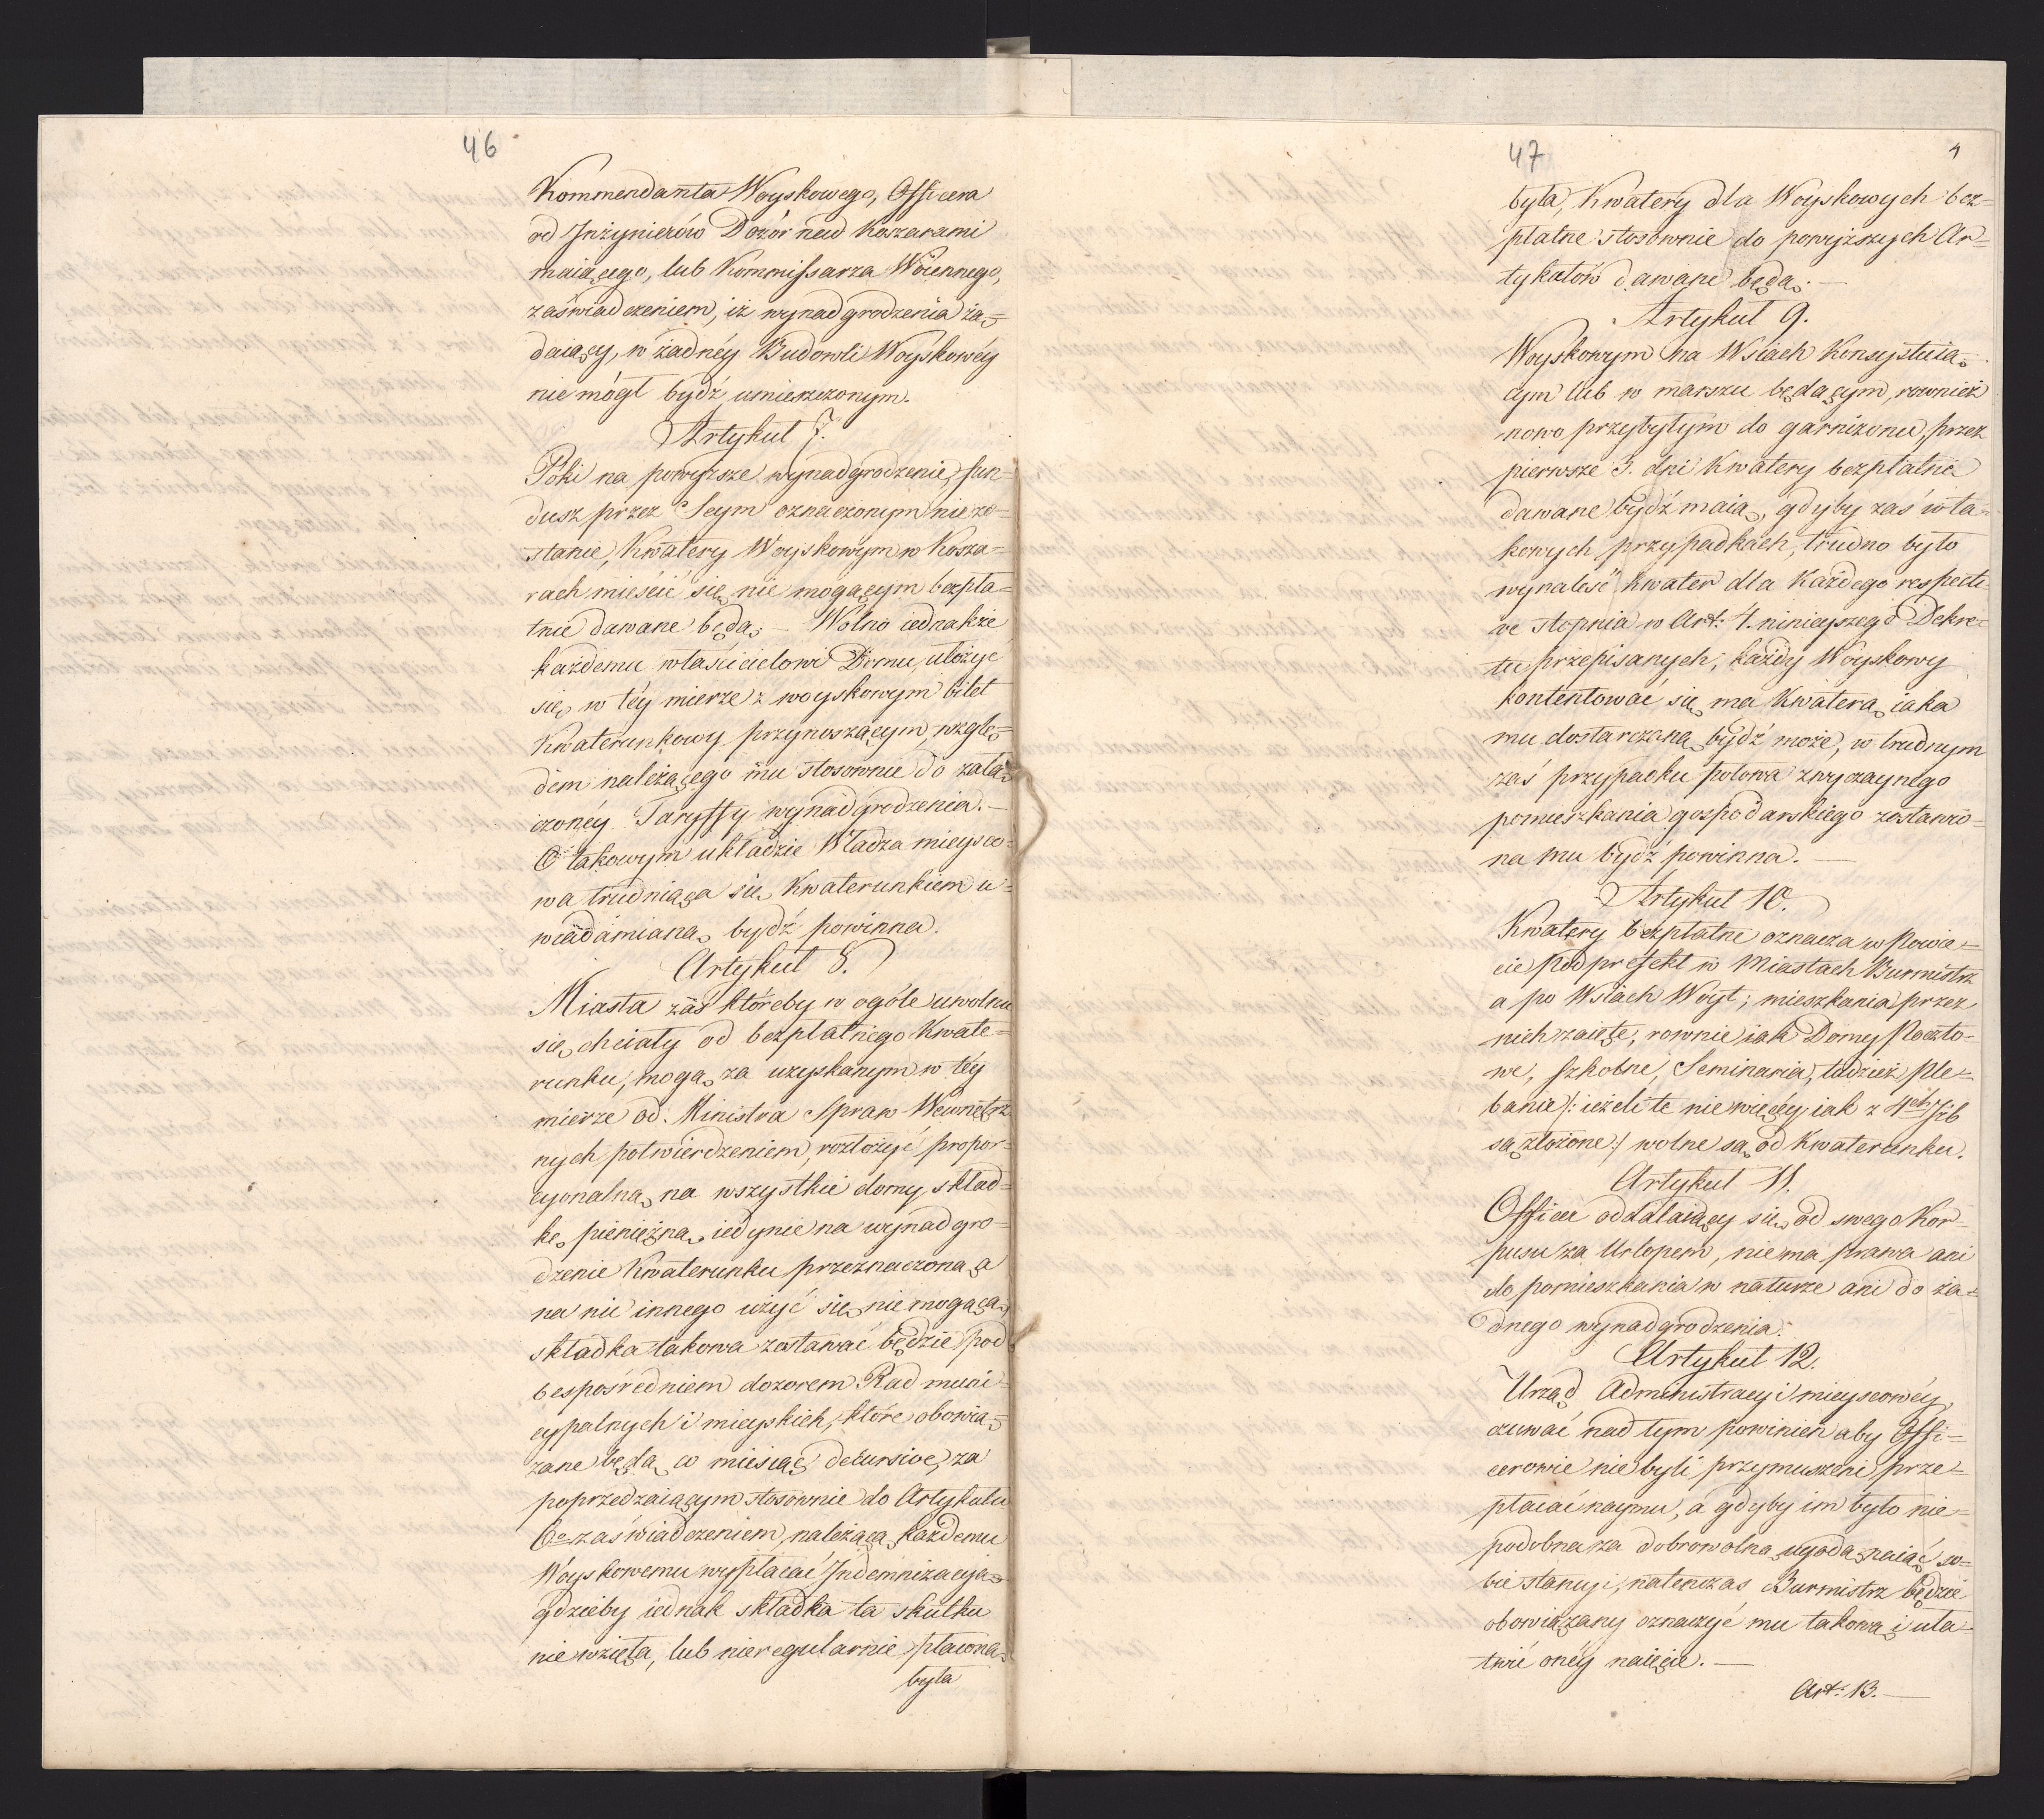 46
Kommendanta Woyskowego, Officera
od Inżynierów Dozór nad Koszarami
maiącego, lub Kommissarza Woiennego,
zaświadczeniem, iż wynadgrodzenia żą=
daiący, w żadnéy Budowli Woyskowéy
nie mógł bydź umieszczonym.
Artykuł 7.
Póki na powyższe wynadgrodzenie, fun=
dusz przez Seym oznaczonym nie zo=
stanie, Kwatery Woyskowym w Kosza=
rach mieścić się nie mogącym bezpła=
tnie dawane będą; — Wolno iednakże
każdemu właścicielowi Domu, ułożyć
się w téy mierze z woyskowym bilet
Kwaterunkowy przynoszącym, wzglę=
dem należącego mu stosownie do załą=
czonéy Taryffy wynadgrodzenia. —
O takowym układzie Władza mieysco=
wa trudniąca się Kwaterunkiem u=
wiadamianą bydź powinna.
Artykuł 8.
Miasta zaś któreby w ogóle uwolnić
się chciały od bezpłatnego Kwate=
runku, mogą za uzyskanym w téy
mierze od Ministra Spraw Wewnętrz
nych potwierdzeniem, rozłożyć propor=
cyonalną na wszystkie domy skład=
kę pieniężną, iedynie na wynadgro=
dzenie Kwaterunku przeznaczoną a
na nic innego użyć się nie mogącą,
składka takowa zostawać będzie pod
bespośredniem dozorem Rad muni=
cypalnych i mieyskich, które obowią=
zane będą co miesiąc decursive, za
poprzedzaiącym stosownie do Artykułu
6o zaświadczeniem, należącą każdemu
Woyskowemu wypłacać Indemnizacyą
gdzieby iednak składka ta skutku
nie wzięła, lub nieregularnie płaconą
była
47
4
była, Kwatery dla Woyskowych bez=
płatne stosownie do powyższych Ar=
tykułów dawane będą. —
Artykuł 9.
Woyskowym na Wsiach Konsystuią=
cym lub w marszu będącym, rownież
nowo przybyłym do garnizonu, przez
pierwsze 3. dni Kwatery bezpłatnie
dawane bydź maią, gdyby zaś w ta=
kowych przypadkach, trudno było
wynaleść kwater dla Każdego respecti
ve stopnia w Art: 4. ninieyszego Dekre=
tu przepisanych, każdy Woyskowy
kontentować się ma Kwaterą iaka
mu dostarczoną bydź może, w trudnym
zaś przypadku połowa zwyczaynego
pomieszkania gospodarskiego zostawio=
na mu bydź powinna. —
Artykuł 10.
Kwatery bezpłatne oznacza w Powie=
cie Podprefekt w Miastach Burmistrz
a po Wsiach Woyt; mieszkania przez
nich zaięte, rownie iak Domy Poczto=
we, szkolne, Seminaria, tudzież Ple=
banie /: ieżeli te nie więcéy iak z 4ech Izb
są złożone :/ wolne są od Kwaterunku.
Artykuł 11.
Officer oddalaiący się od swego Kor=
pusu za Urlopem, nie ma prawa ani
do pomieszkania w naturze ani do ża=
dnego wynadgrodzenia.
Artykuł 12.
Urząd Administracyi mieyscowéy,
czuwać nad tym powinien aby Offi=
cerowie nie byli przymuszeni prze=
płacać naymu, a gdyby im było nie=
podobna za dobrowolną ugodą naiąć so=
bie stancyi, natenczas Burmistrz będzie
obowiązany oznaczyć mu takową i uła=
twić onéy naięcie. —
Art: 13. —